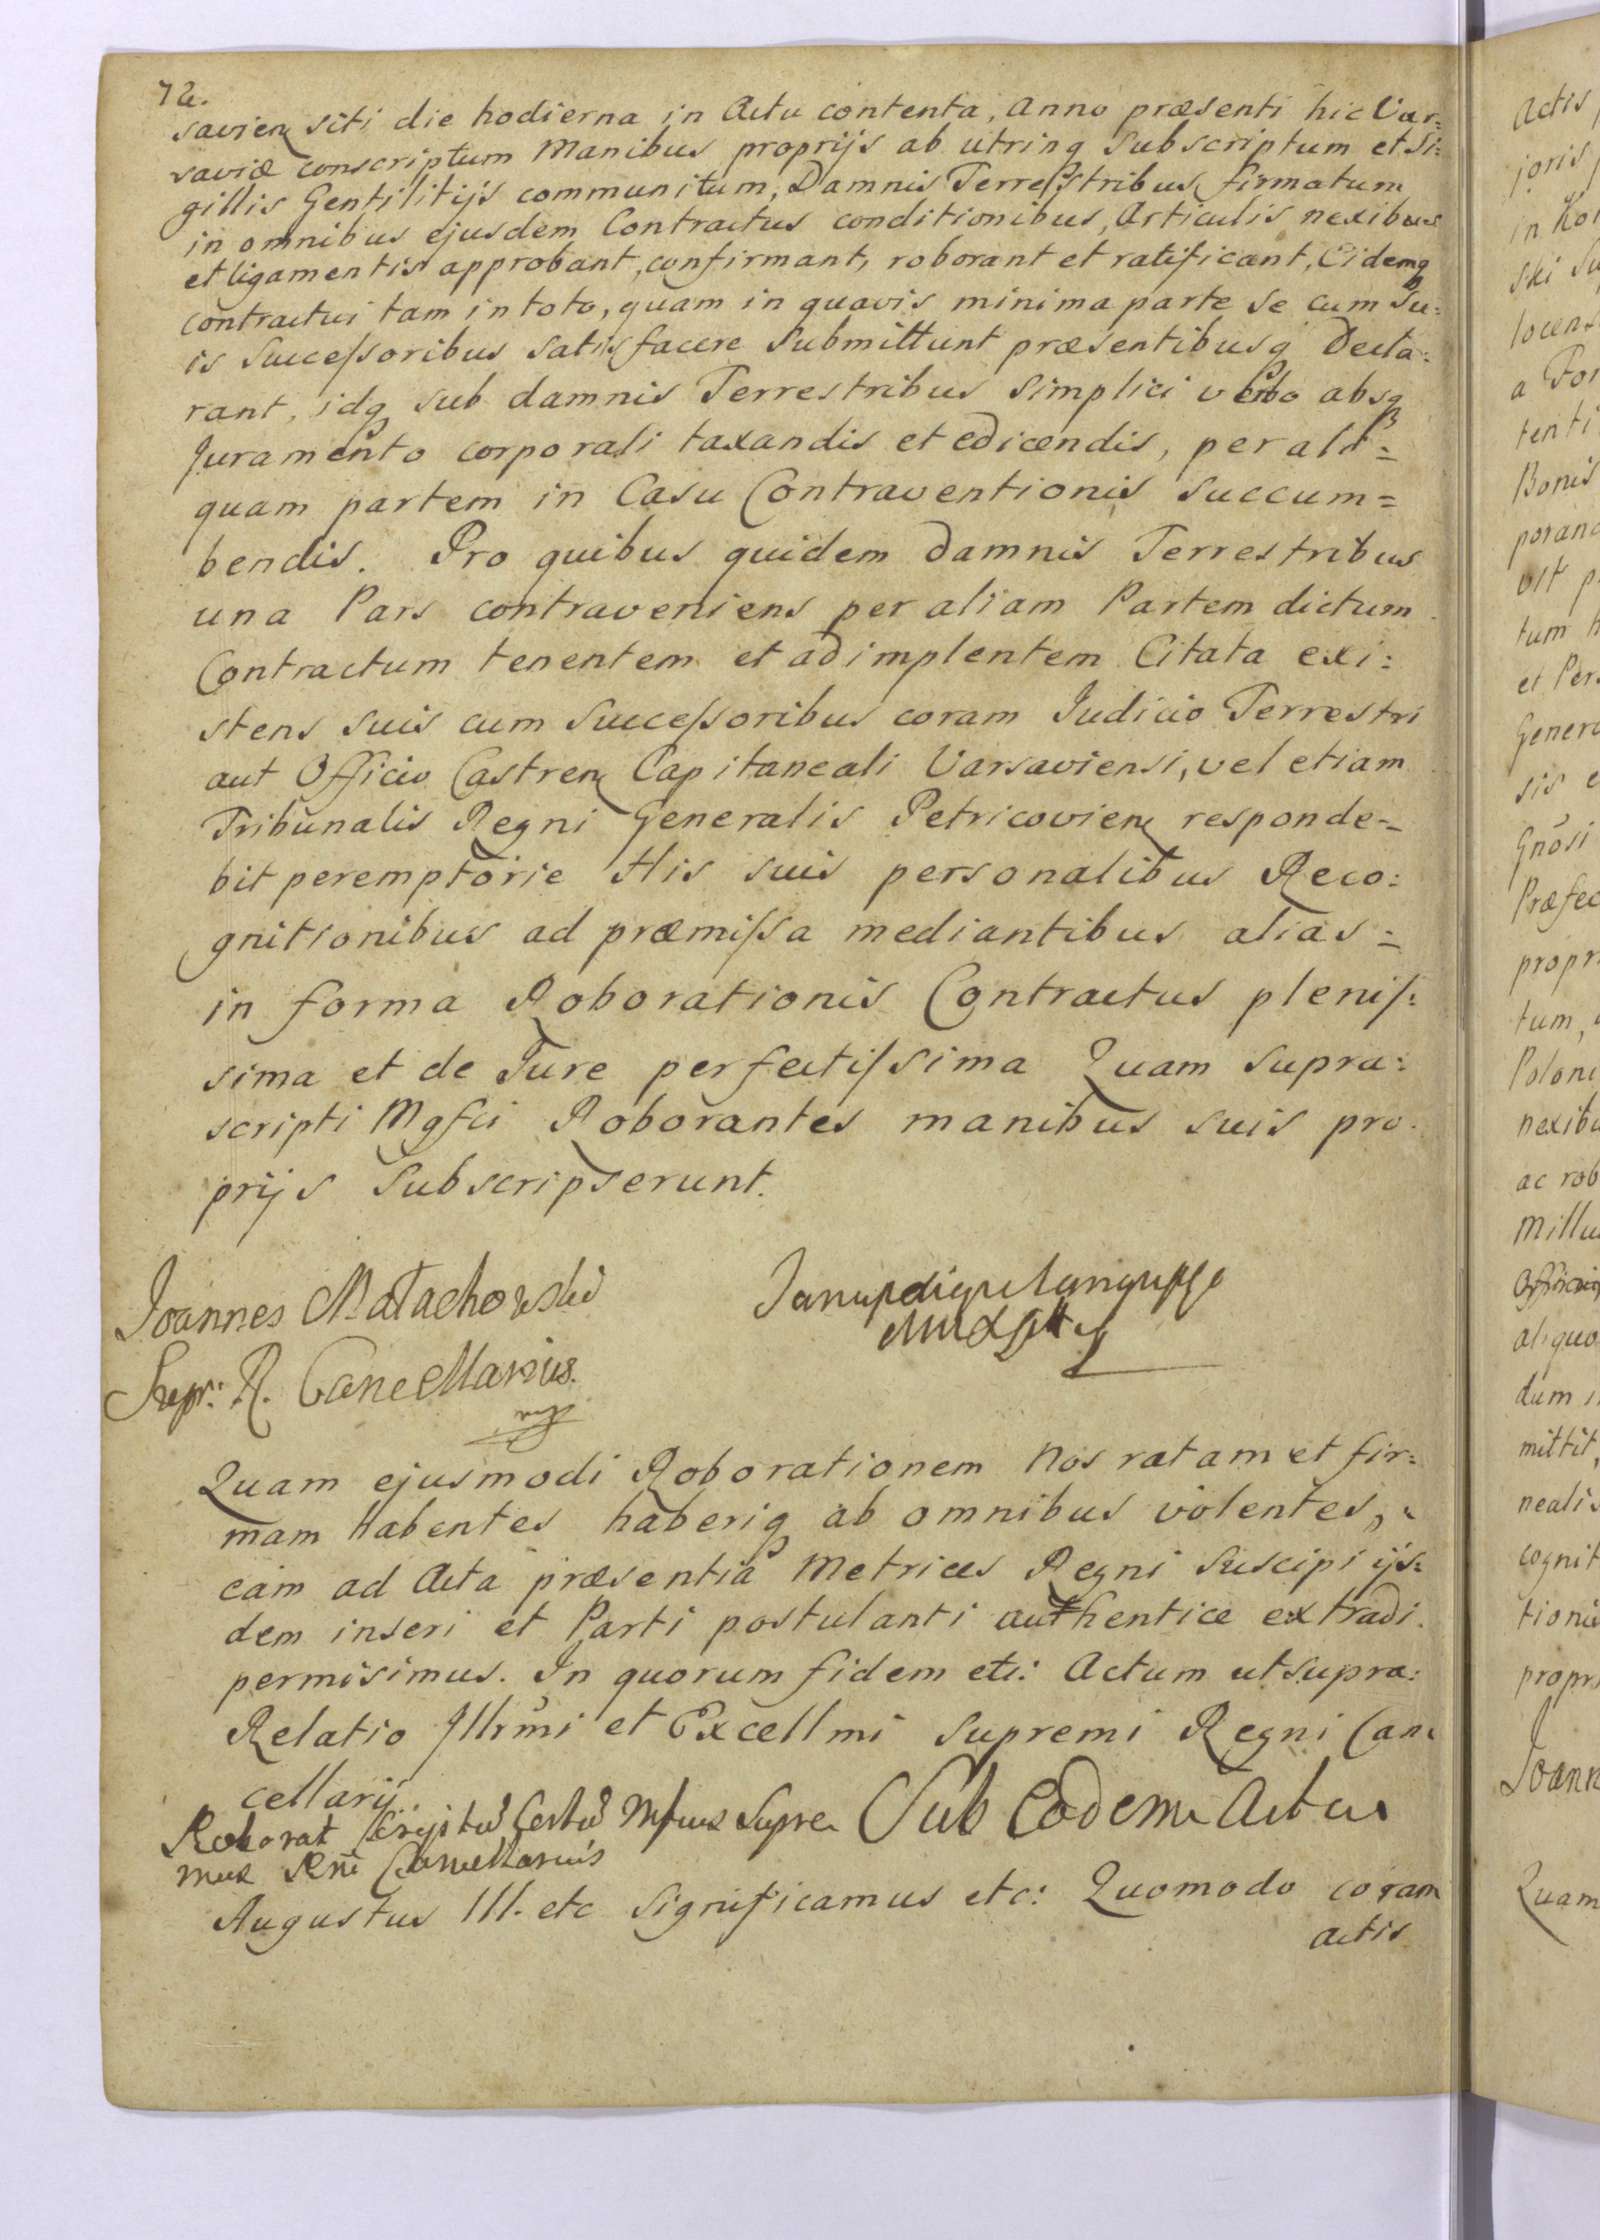 72.
savien siti die hodierna in Actu contenta, Anno præsenti hic Var=
saviæ conscriptum Manibus proprijs ab utrinq subscriptum et Si=
gillis Gentilitijs communitum, Damnis Terrestribus firmatum
in omnibus ejusdem Contractus conditionibus, Articulis nexibus
et ligamentis approbant, confirmant, roborant et ratificant, Eidemq
contractui tam in toto, quam in quavis minima parte se cum Su=
is Succeſsoribus satisfacere Submittunt præsentibusq Decla=
rant, idq sub damnis Terrestribus simplici verbo absq
Juramento corporali taxandis et edicendis, per ali=
quam partem in Casu Contraventionis succum=
bendis. Pro quibus quidem Damnis Terrestribus
una Pars contraveniens per aliam Partem dictum
Contractum tenentem et adimplentem Citata exi:
stens suis cum Succeſsoribus coram Judicio Terrestri
aut Officio Castren Capitaneali Varsaviensi, vel etiam
Tribunalis Regni Generalis Petricovien responde=
bit peremptorie His suis personalibus Reco:
gnitionibus ad præmiſsa mediantibus alias=
in forma Roborationis Contractus pleniſ:
sima et de Jure perfectiſsima Quam supra:
scripti Mgfci Roborantes manibus suis pro
prijs Subscripserunt.
Joannes Małachowski
Supr: R. Cancellarius.
mp
Quam ejusmodi Roborationem Nos ratam et fir:
mam habentes haberiq ab omnibus volentes,
eam ad Acta præsentia Metrices Regni suscipi ijs:
dem inseri et Parti postulanti authentice extradi
permisimus. In quorum fidem etc: Actum ut supra:
Relatio Jllrmi et Excellmi Supremi Regni Can
cellarij.
Roborat Mfcus Supre
mus Rni Cancellarius
Sub Eodem Actu
Augustus III. etc Significamus etc: Quomodo coram
actis